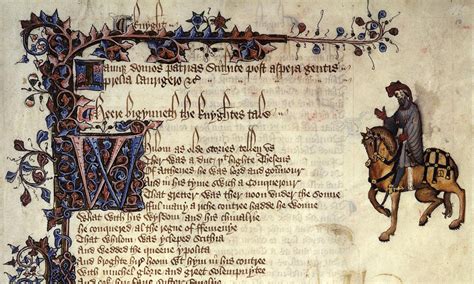 Knyght
Iamque domos patrias Scithice post aspera gentis
prelia laurigero &c
Heere bigynneth the knyghtes tale
Whilom as olde stories tellen us
Ther was a duc þt highte Theseus
Of Atthenes he was lord and gouernour
And in his tyme swich a Conquerour
That gretter was ther noon vnder the sonne
Ful many a riche contree hadde he wonne
What with his wysdom and his chiualrie
He conquered al the regne of ffemenye
That whilom was ycleped Scithia
And wedded the queene ypolita
And broghte hire hoom wt hym in his contree
With muchel glorie and greet solempnytee